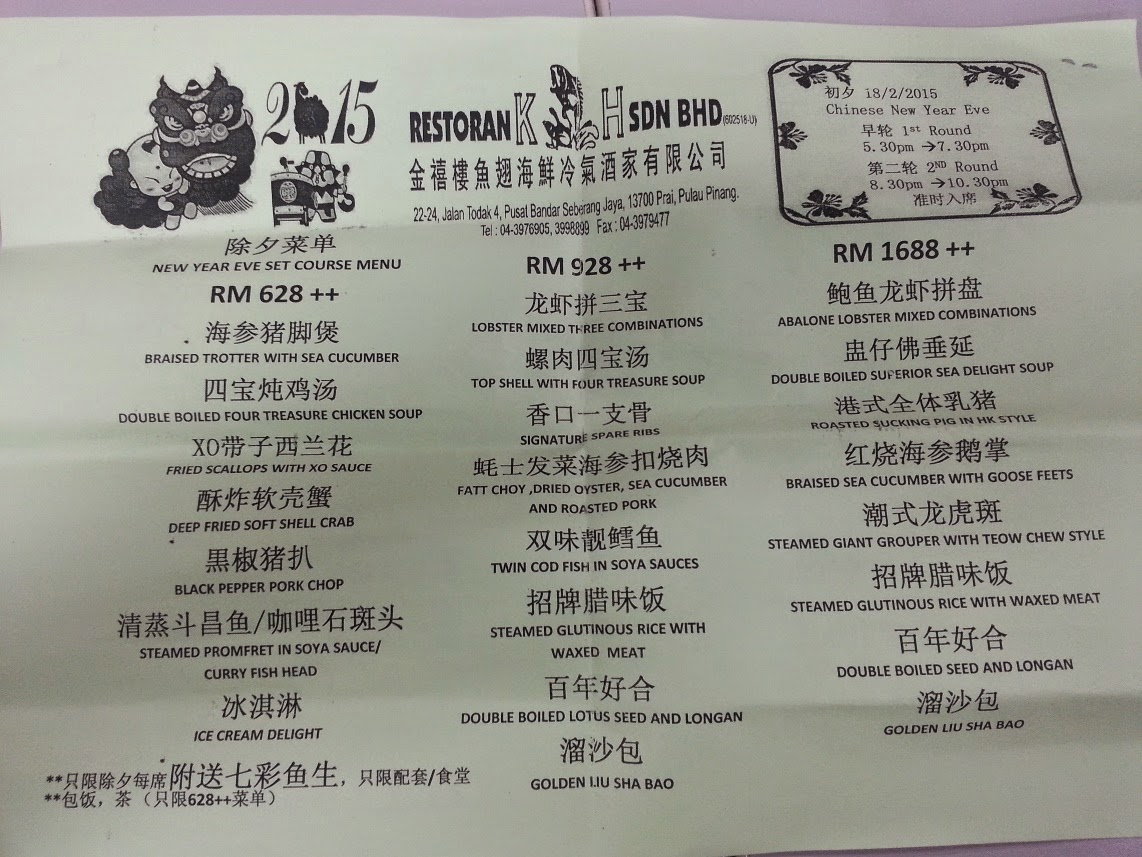 2015
RESTORAN K H SDN BHD (602518-U)
金禧樓魚翅海鮮冷氣酒家有限公司
22-24, Jalan Todak 4, Pusat Bandar Seberang Jaya, 13700 Prai, Pulau Pinang.
Tel : 04-3976905, 3998899 Fax : 04-3979477
初夕 18/2/2015
Chinese New Year Eve
早轮 1st Round
5.30pm →7.30pm
第二轮 2ND Round
8.30pm →10.30pm
准时入席
除夕菜单
NEW YEAR EVE SET COURSE MENU
RM 628 ++
海参猪脚煲
BRAISED TROTTER WITH SEA CUCUMBER
四宝炖鸡汤
DOUBLE BOILED FOUR TREASURE CHICKEN SOUP
XO带子西兰花
FRIED SCALLOPS WITH XO SAUCE
酥炸软壳蟹
DEEP FRIED SOFT SHELL CRAB
黒椒猪扒
BLACK PEPPER PORK CHOP
清蒸斗昌鱼/咖哩石斑头
STEAMED PROMFRET IN SOYA SAUCE/
CURRY FISH HEAD
冰淇淋
ICE CREAM DELIGHT
RM 928 ++
龙虾拼三宝
LOBSTER MIXED THREE COMBINATIONS
螺肉四宝汤
TOP SHELL WITH FOUR TREASURE SOUP
香口一支骨
SIGNATURE SPARE RIBS
蚝士发菜海参扣烧肉
FATT CHOY ,DRIED OYSTER, SEA CUCUMBER
AND ROASTED PORK
双味靓鳕鱼
TWIN COD FISH IN SOYA SAUCES
招牌腊味饭
STEAMED GLUTINOUS RICE WITH
WAXED MEAT
百年好合
DOUBLE BOILED LOTUS SEED AND LONGAN
溜沙包
GOLDEN LIU SHA BAO
RM 1688 ++
鲍鱼龙虾拼盘
ABALONE LOBSTER MIXED COMBINATIONS
盅仔佛垂延
DOUBLE BOILED SUPERIOR SEA DELIGHT SOUP
港式全体乳猪
ROASTED SUCKING PIG IN HK STYLE
红烧海参鹅掌
BRAISED SEA CUCUMBER WITH GOOSE FEETS
潮式龙虎斑
STEAMED GIANT GROUPER WITH TEOW CHEW STYLE
招牌腊味饭
STEAMED GLUTINOUS RICE WITH WAXED MEAT
百年好合
DOUBLE BOILED SEED AND LONGAN
溜沙包
GOLDEN LIU SHA BAO
**只限除夕每席附送七彩鱼生，只限配套/食堂
**包饭，茶（只限628++菜单）